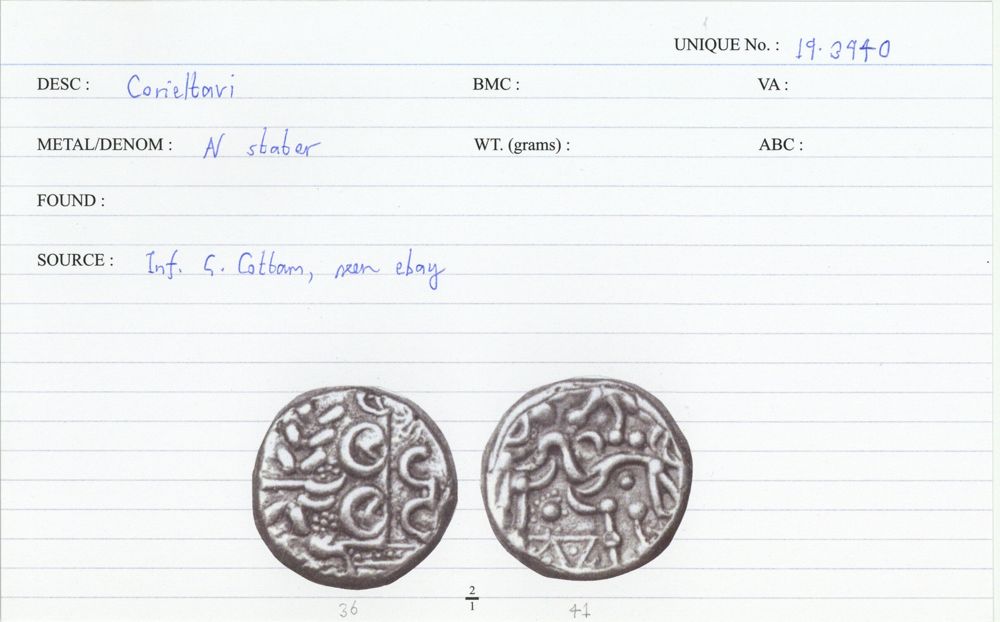 UNIQUE No. : 19.3940
DESC : Corieltavi BMC : VA :
METAL/DENOM : N stater WT. (grams) : ABC :
FOUND :
SOURCE : Inf. G. Cottam, seen ebay
2
1
36 41